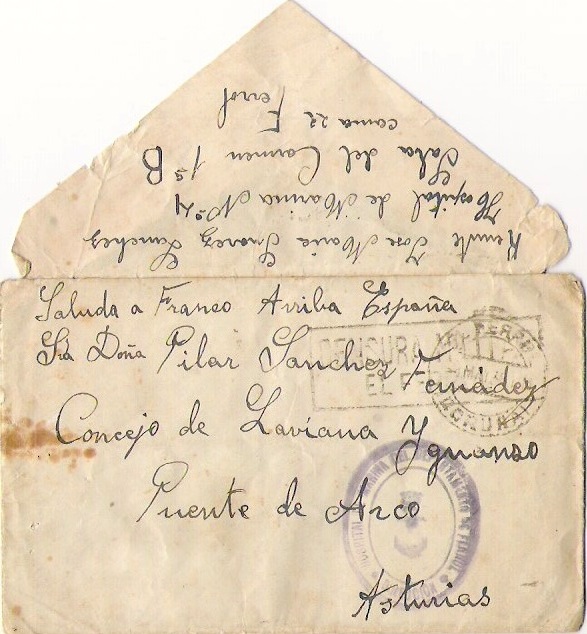 Remite Jose Maria Suarez Sanchez
Hospital de Marina Nº 4
Sala del Carmen 1ª B
cama 22 Ferrol
Saluda a Franco Arriba España
Sra Doña Pilar Sanchez Fernádez
Concejo de Laviana Yguanzo
Puente de Arco
Asturias
CENSURA MILITAR
EL FERROL
HOSPITAL DE MARINA
DEPARTAMENTO DE FERROL